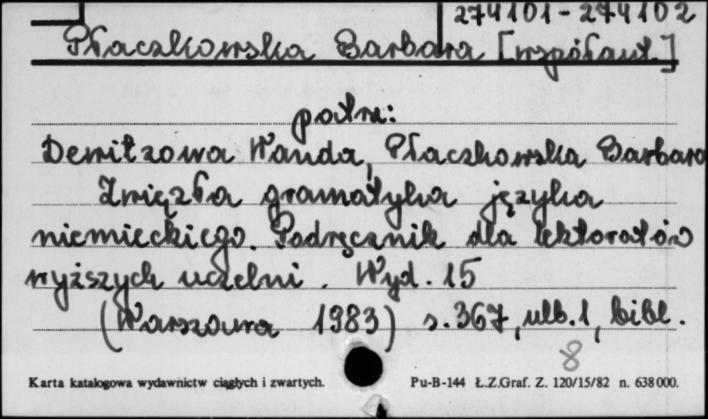 274101-274102
Płaczkowska Barbara [współaut.]
patrz:
Dewitzowa Wanda, Płaczkowska Barbara
Zwięzła gramatyka języka
niemieckiego. Podręcznik dla lektoratów
wyższych uczelni. Wyd. 15
(Warszawa 1983) s.367, ulb.1, bibl.
8
Karta katalogowa wydawnictw ciągłych i zwartych. Pu-B-144 Ł.Z.Graf. Z. 120/15/82 n. 638000.